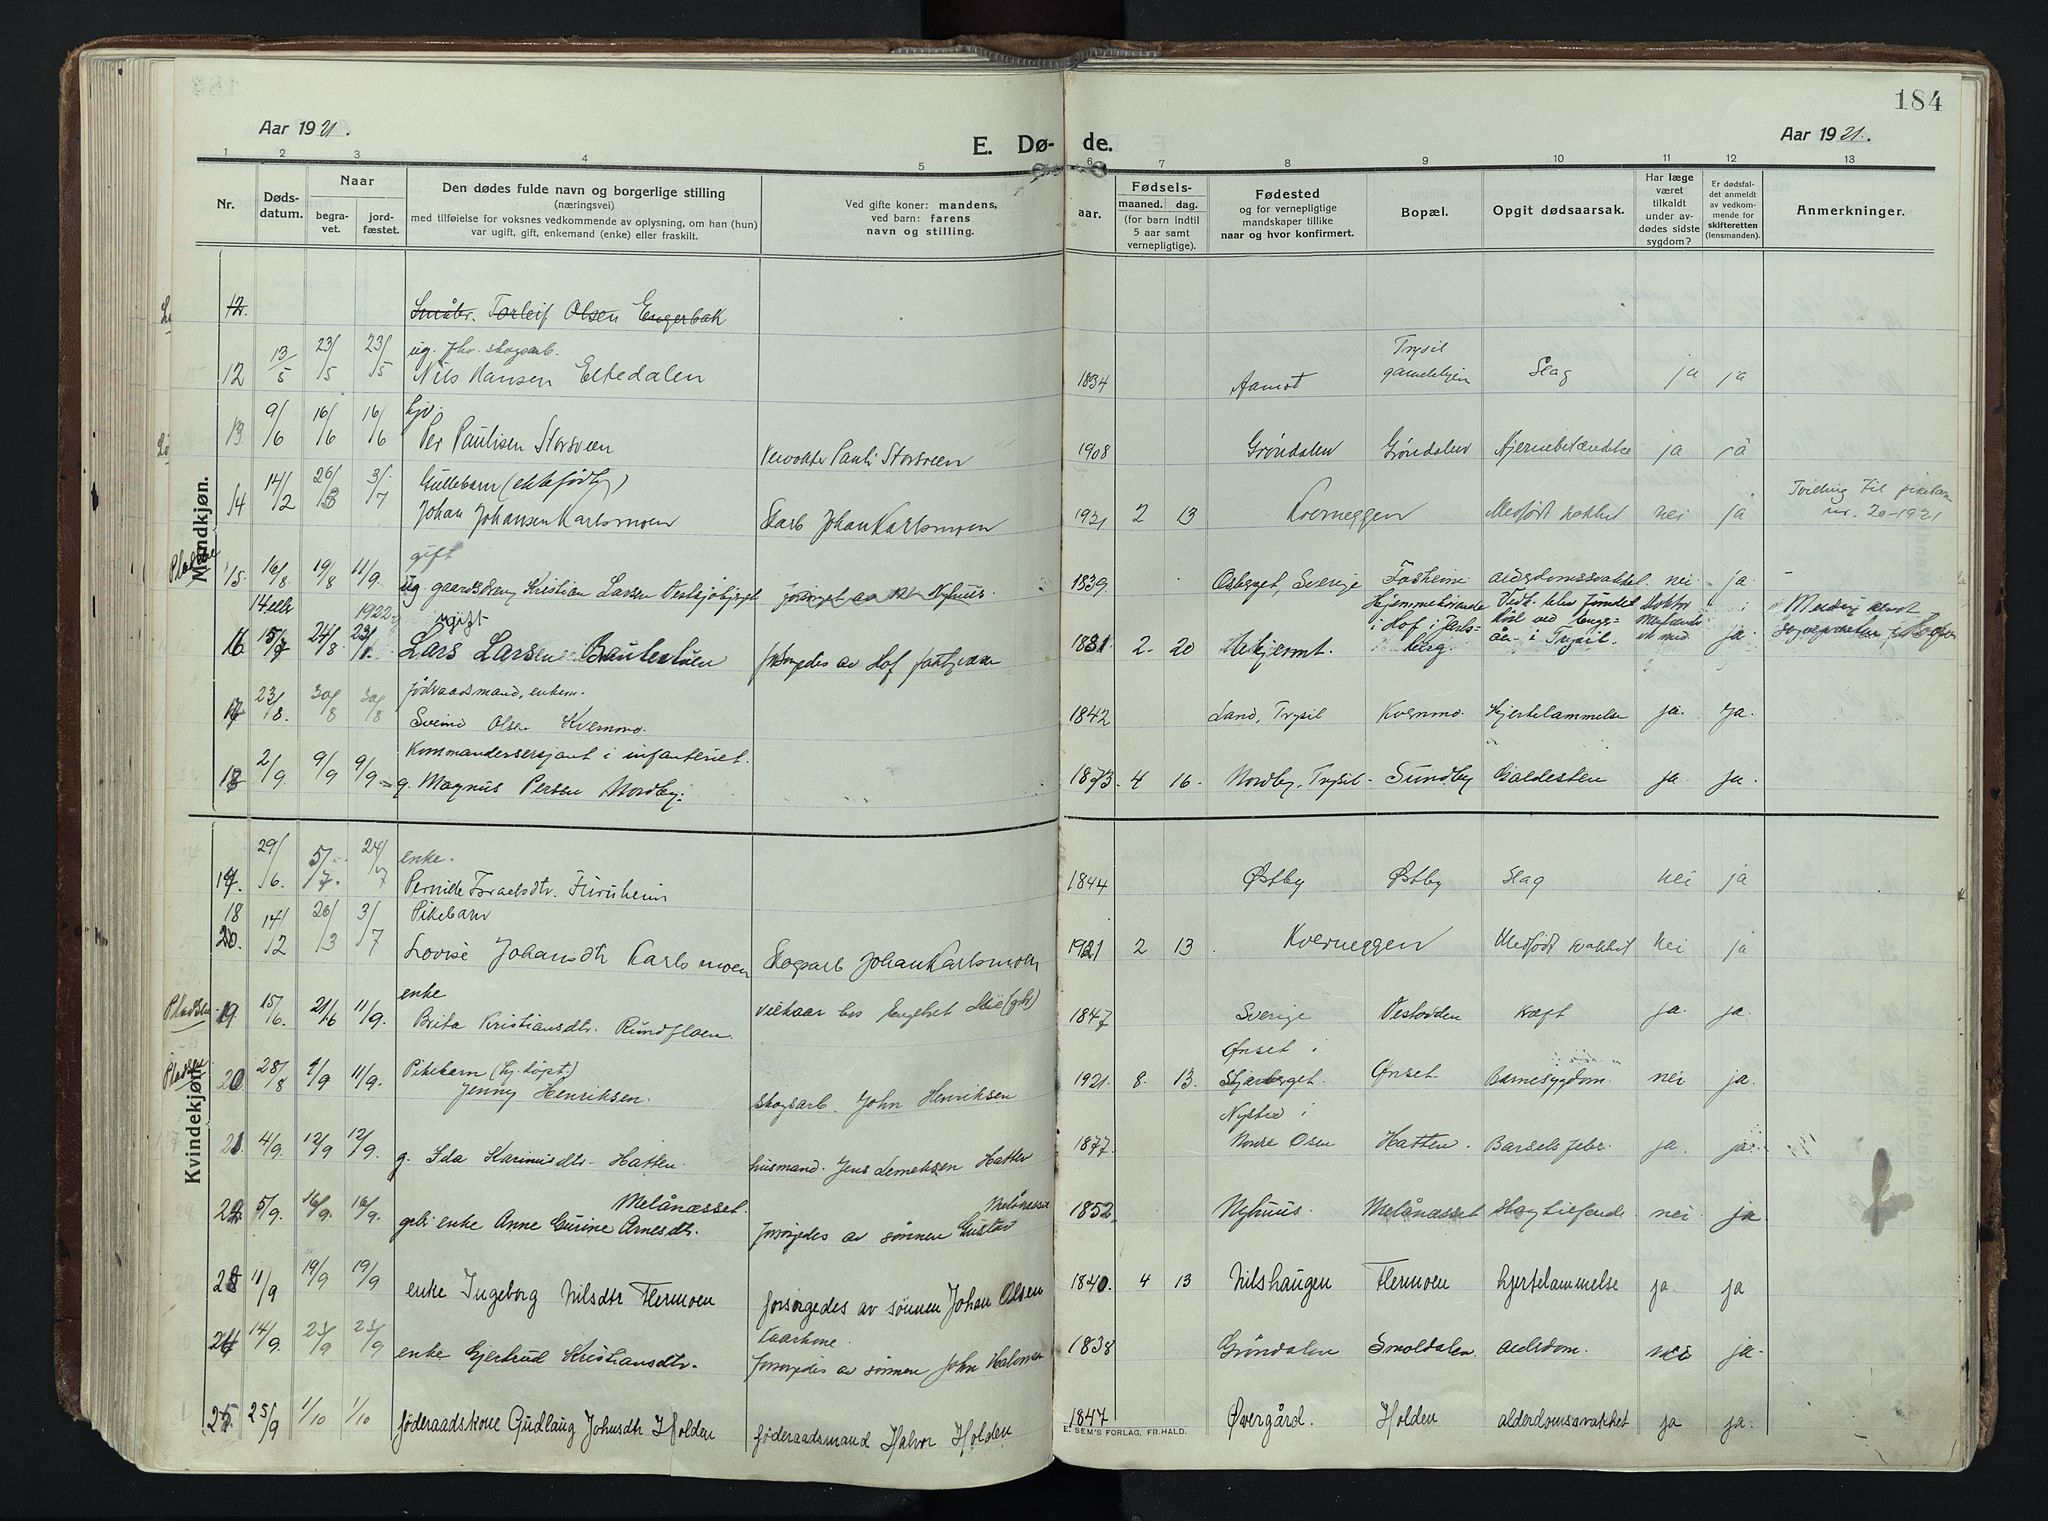 184
Aar 1921.
E. Dø- de.
Aar 1921.
1 2 3 4 5 6 7 8 9 10 11 12 13
Nr.
Døds-
datum.
Naar
begra-
vet.
jord-
fæstet.
Den dødes fulde navn og borgerlige stilling
(næringsvei)
med tilføielse for voksnes vedkommende av oplysning, om han (hun)
var ugift, gift, enkemand (enke) eller fraskilt.
Ved gifte koner: mandens,
ved barn: farens
navn og stilling.
Fødsels-
aar.
maaned. dag.
(for barn indtil
5 aar samt
vernepligtige).
Fødested
og for vernepligtige
mandskaper tillike
naar og hvor konfirmert.
Bopæl.
Opgit dødsaarsak.
Har læge
været
tilkaldt
under av-
dødes sidste
sygdom?
Er dødsfal-
det anmeldt
av vedkom-
mende for
skifteretten
(lensmanden).
Anmerkninger.
Mandkjøn.
12 Småbr. Torleif Olsen Engerbak
ug. fhv. skogsarb. Trysil
12 13/5 23/5 23/5 Nils Hansen Eltedalen 1834 Aamot gamlehjem Slag ja ja
13 9/6 16/6 16/6 Per Paulsen Storsveen Pauli Storsveen 1908 Grøndalen Grøndalen Hjernebetændelse ja ja
Guttebarn (ektefødt) Tvilling til pikebarn
14 14/2 26/3 3/7 Johan Johansen Karlsmoen Skarb Johan Karlsmoen 1921 2 13 Kverneggen Medfødt svakhet nei ja nr. 20-1921
gift
15 16/8 19/8 11/9 ug gaardsdreng Kristian Larsen 1839 Osberget, Sverige Fosheim alderdomssvakhet nei ja
14 elle 1922 ugift Hjemmehørende
16 15/7 24/8 23/1 Lars Larsen Bautestuen forsørgedes av Hof fattigvæsen 1831 2 20 i Hof i Jarls-
berg. åen i Trysil ja
føderaadsmand, enkem.
17 23/8 30/8 30/8 Svend Olsen Kvernmo 1842 Land, Trysil Kvernmo Hjertelammelse ja ja
Kommandersersjant i infanteriet.
18 2/9 9/9 9/9 g. Magnus Persen Nordby 1873 4 16 Nordby, Trysil Sundby Galdesten ja ja
Kvindekjøn.
enke
17 29/6 5/7 24/7 Pernille Israelsdtr. Furuheim 1844 Østby Østby Slag nei ja
18 Pikebarn
20 14/2 26/3 3/7 Lovise Johansdtr Karlsmoen Skogsarb Johan Karlsmoen 1921 2 13 Kverneggen Medfødt svakhet nei ja
enke
Pladsen 19 15/6 21/6 11/9 Brita Kristiansdtr. Rundfloen vilkaar hos Engebret Mie 1847 Sverige Vestodden Kræft ja ja
Pikebarn (hj. døpt.) Ønset i
Pladsen 20 28/8 4/9 11/9 Jenny Henriksen skogsarb. John Henriksen 1921 8 13 Skjærberget Ønset Barnesygdom nei ja
Nysted i
21 4/9 12/9 12/9 g. Ida Karinusdtr. Hatten husmand Jens Hatten 1877 Nordre Osen Hatten Barselsfeber ja ja
Melånæsset Melånæsset
22 5/9 16/9 16/9 enke Anne Gurine Arnesdtr. forsørgedes av sønnen Gustav 1852 Nyhuus Melånæsset Slagtilfælde nei ja
23 11/9 19/9 19/9 enke Ingeborg Nilsdtr Flermoen forsørgedes av sønnen Johan Olsen 1840 4 13 Nilshaugen Flermoen hjertelammelse ja ja
24 14/9 23/9 23/9 enke Gjertrud Kristiansdtr. forsørgedes av sønnen John Halvorsen 1838 Grøndalen Smoldalen alderdom nei ja
25 25/9 1/10 1/10 føderaadskone Gudlaug Johnsdtr Holden føderaadsmand Halvor Holden 1847 Øvergård Holden alderdomssvakhet ja ja
E. SEM'S FORLAG, FR.HALD.